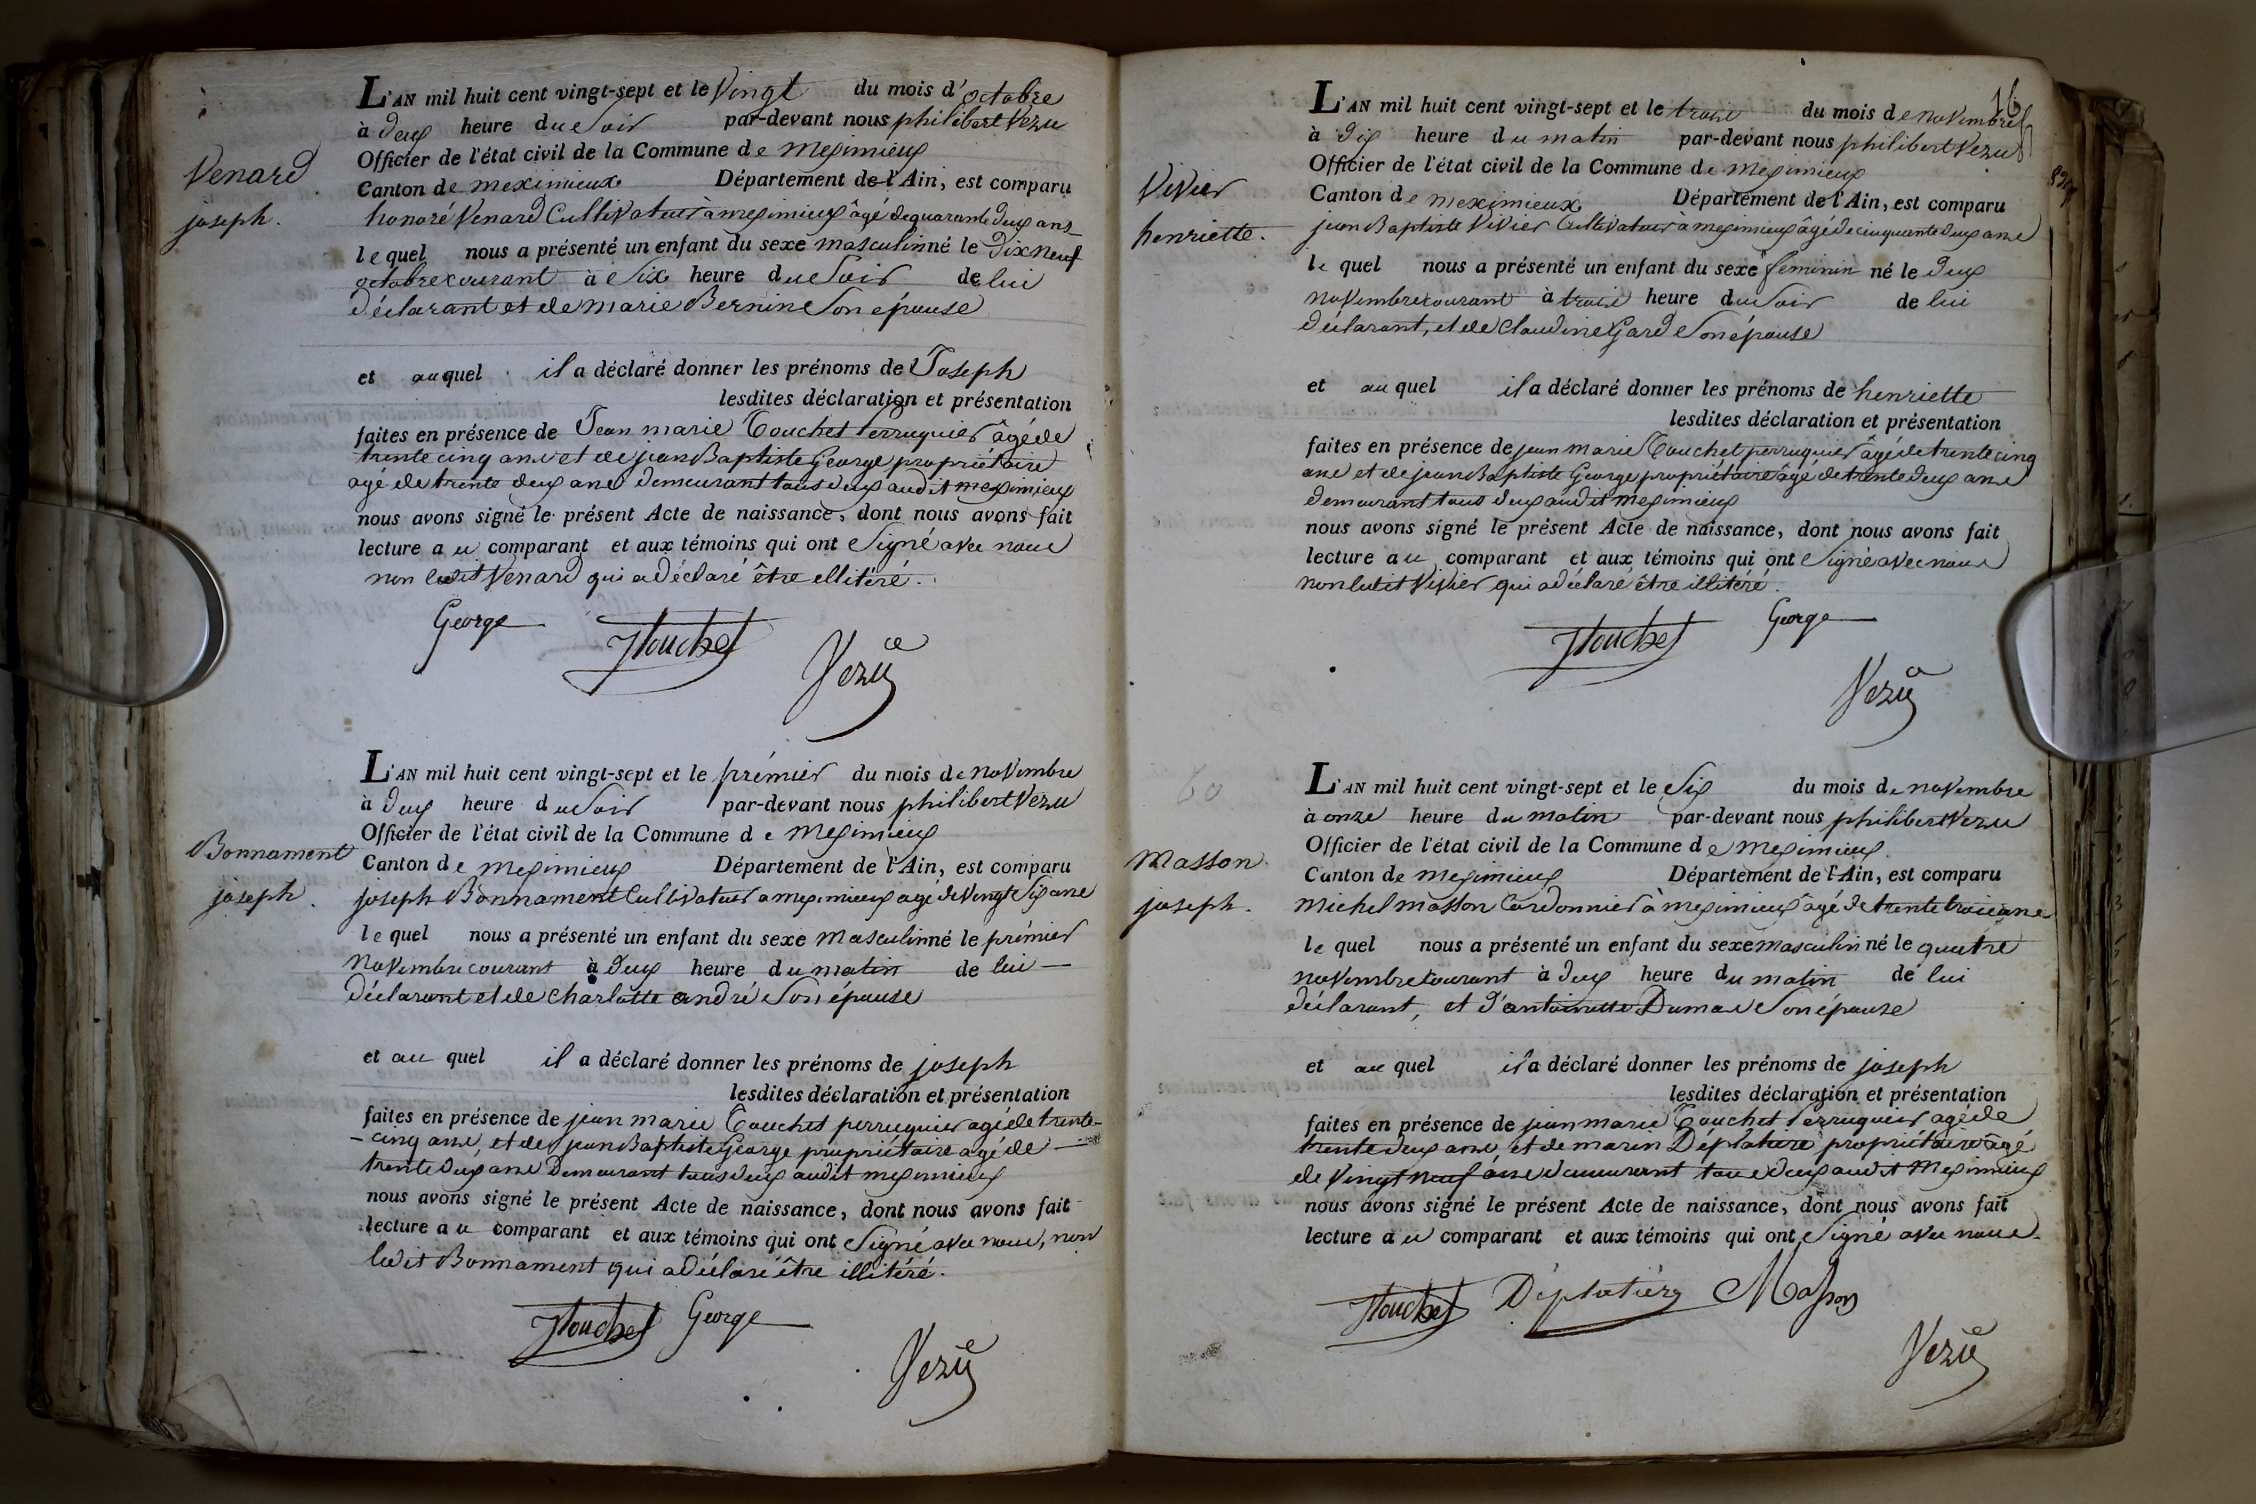 Venard
joseph.
L'AN mil huit cent vingt-sept et le Vingt du mois d'octobre
à deux heure du Soir par-devant nous philibert Vezu
Officier de l'état civil de la Commune de Meximieux
Canton de meximieux Département de l'Ain, est comparu
honoré Venard Cultivateur à meximieux âgé de quarante deux ans
le quel nous a présenté un enfant du sexe masculin né le dix neuf
octobre courant à Six heure du Soir de lui
déclarant et de marie Bernin Son épouse
et auquel il a déclaré donner les prénoms de Joseph
lesdites déclaration et présentation
faites en présence de Jean marie Touchet Perruquier âgé de
trente cinq ans et de jean Baptiste George propriétaire
agé de trente deux ans demeurant tous deux audit meximieux
nous avons signé le présent Acte de naissance, dont nous avons fait
lecture au comparant et aux témoins qui ont Signé avec nous
non ledit Venard qui a déclaré être illitéré.
George JTouchet Vezu
Bonnament
joseph.
L'AN mil huit cent vingt-sept et le prémier du mois de novembre
à deux heure du Soir par-devant nous philibert Vezu
Officier de l'état civil de la Commune de Meximieux
Canton de Meximieux Département de l'Ain, est comparu
joseph Bonnament Cultivateur a meximieux agé de Vingt Six ans
le quel nous a présenté un enfant du sexe Masculin né le prémier
Novembre courant à deux heure du matin de lui
déclarant et de charlotte andré Son épouse
et au quel il a déclaré donner les prénoms de joseph
lesdites déclaration et présentation
faites en présence de jean marie Touchet perruquier agé de trente-
cinq ans, et de jean Baptiste George propriétaire agé de
trente deux ans Demeurant tous deux audit meximieux
nous avons signé le présent Acte de naissance, dont nous avons fait
lecture au comparant et aux témoins qui ont Signé avec nous, non
ledit Bonnament qui a déclaré être illitéré.
JTouchet George
Vezu
16
Vivier
henriette.
L'AN mil huit cent vingt-sept et le trois du mois de novembre
à dix heure du matin par-devant nous philibert Vezu
Officier de l'état civil de la Commune de Meximieux
Canton de meximieux Département de l'Ain, est comparu
jean Baptiste Vivier Cultivateur à meximieux âgé de cinquante deux ans
le quel nous a présenté un enfant du sexe feminin né le deux
novembre courant à trois heure du Soir de lui
déclarant, et de Claudine Gard Son épouse
et au quel il a déclaré donner les prénoms de henriette
lesdites déclaration et présentation
faites en présence de jean marie Touchet perruquier âgé de trente cinq
ans et de jean Baptiste George propriétaire âgé de trente deux ans
demeurant tous deux audit meximieux
nous avons signé le présent Acte de naissance, dont nous avons fait
lecture au comparant et aux témoins qui ont Signé avec nous
non ledit Vivier qui a déclaré être illitéré.
JTouchet George
Vezu
60
Masson
joseph.
L'AN mil huit cent vingt-sept et le Six du mois de novembre
à onze heure du matin par-devant nous philibert Vezu
Officier de l'état civil de la Commune de Meximieux
Canton de Meximieux Département de l'Ain, est comparu
Michel Masson Cordonnier à meximieux âgé de trente trois ans
le quel nous a présenté un enfant du sexe masculin né le quatre
novembre courant à deux heure du matin de lui
déclarant, et d'antoinette Dumas Son épouse
et au quel il a déclaré donner les prénoms de joseph
lesdites déclaration et présentation
faites en présence de jean marie Touchet Perruquier agé de
trente deux ans, et de marin Déplature propriétaire âgé
de Vingt neuf ans demeurant tous deux audit Meximieux
nous avons signé le présent Acte de naissance, dont nous avons fait
lecture au comparant et aux témoins qui ont Signé avec nous.
JTouchet Déplatière Masson
Vezu